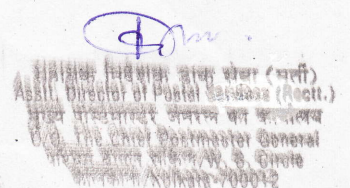 सहायक निदेशक डाक सेवा (भर्ती)
Asstt. Director of Postal Services (Rectt.)
मुख्य पोस्टमास्टर जनरल का कार्यालय
O/o The Chief Postmaster General
W.B. Circle
Kolkata-700012